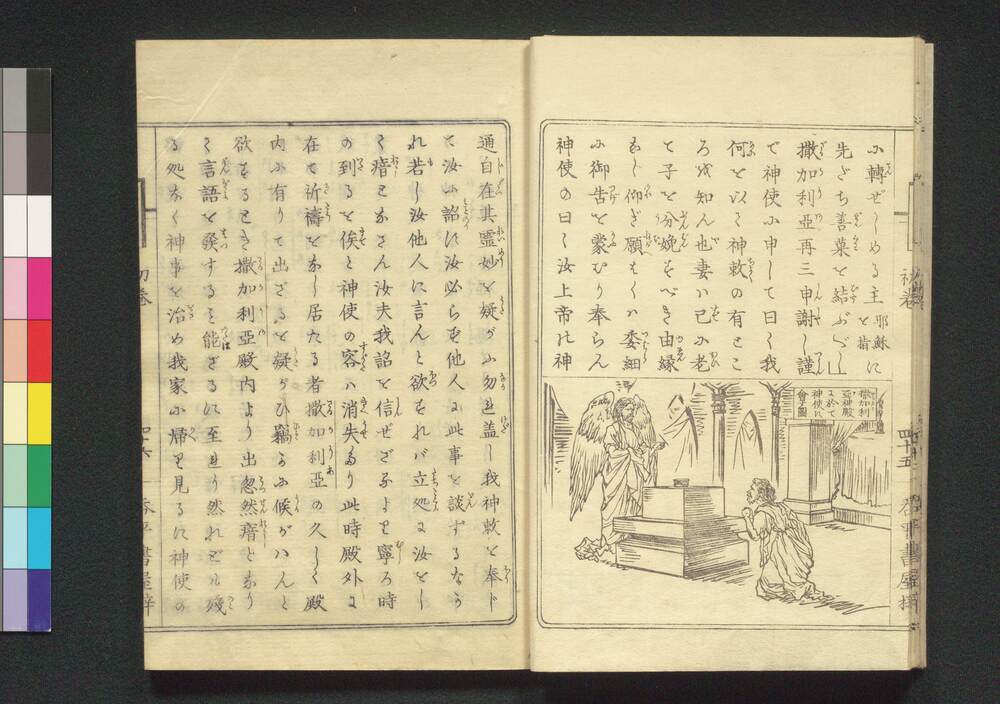 に轉ぜしめる主耶蘇を指に
先だち善菓を結ぶべし
撒加利亞再三申謝し謹
で神使に申して曰く我
何を以て神敕の有とこ
ろを知ん也妻ハ已に老
て子を分娩すべき由縁
なし仰ぎ願もくハ委細
に御告を蒙むり奉らん
神使の曰く汝上帝の神
撒加利
亞神殿
に於て
神使に
會ふ圖
初卷
四十五
通自在其霊妙を疑がふ勿れ蓋し我神敕を奉じ
て汝に詔に汝必らず他人に此事を談ずるなか
れ若し汝他人に言んと欲すれバ立処に汝をし
て瘖となさん汝夫我詔を信ぜざるよを寧ろ時
の到るを俟と神使の容ハ消失たり此時殿外に
在て祈禱をなし居たる者撒加利亞の久しく殿
内に有りて出ざるを疑がひ竊かに候がハんと
欲するとき撒加利亞殿内より出忽然瘖となり
て言語を發する能ざるに至れり然れども殘
る処なく神事を治め我家に帰り見るに神使の
初卷
四十六